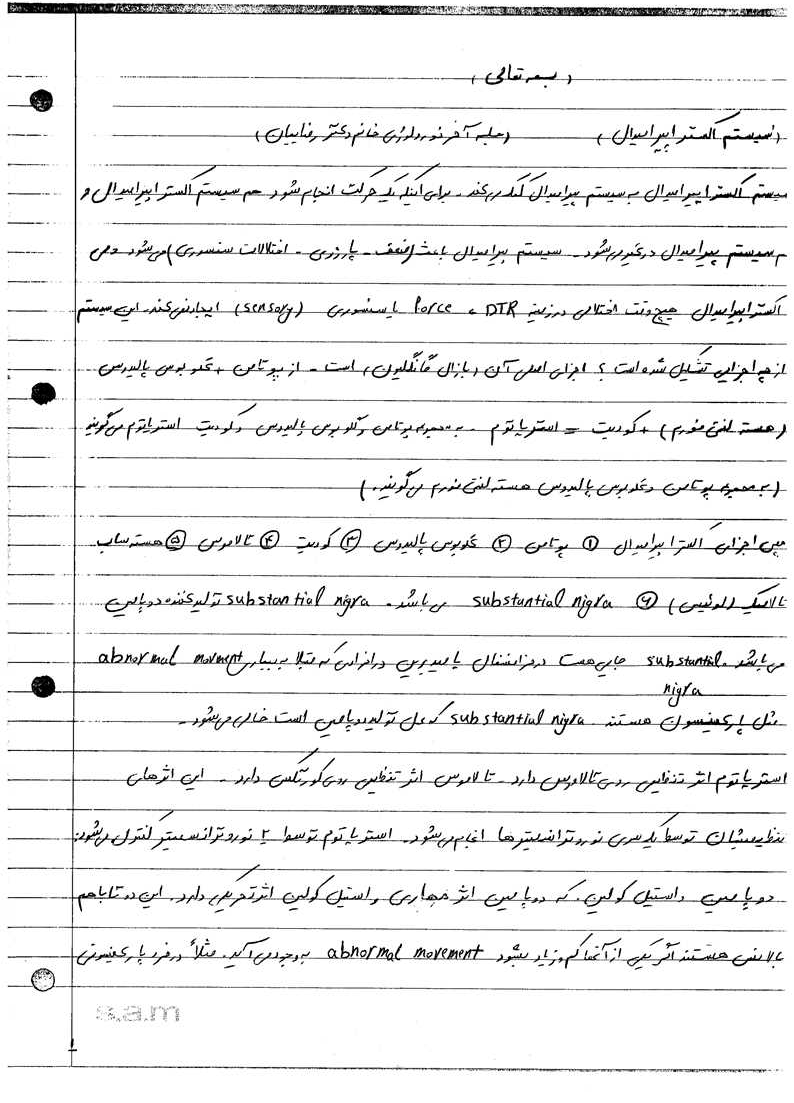 (بسمه تعالی)
(سیستم اکستراپیرامیدال) (جلسه آخر نورولوژی خانم دکتر رضاییان)
سیستم اکستراپیرامیدال به سیستم پیرامیدال کمک می‌کند. برای اینکه یک حرکت انجام شود هم سیستم اکستراپیرامیدال و
م سیستم پیرامیدال درگیر می‌شود. سیستم پیرامیدال باعث (ضعف - پارزی - اختلالات سنسوری) می‌شود ولی
اکستراپیرامیدال هیچ وقت اختلالی در زمینه DTR ، force یا سنسوری (sensory) ایجاد نمی‌کند. این سیستم
از چه اجزایی تشکیل شده است؟ اجزای اصلی آن (بازال گانگلیون) است. از پوتامن + گلوبوس پالیدوس
(هسته لنتی فورم) + کودیت = استریاتوم. به مجموعه پوتامن و گلوبوس پالیدوس و کودیت استریاتوم می‌گویند
(به مجموعه پوتامن و گلوبوس پالیدوس هسته لنتی فورم می‌گویند.)
پس اجزای اکستراپیرامیدال ① پوتامن ② گلوبوس پالیدوس ③ کودیت ④ تالاموس ⑤ هسته ساب
تالامیک (لوئیس) ⑥ substantial nigra می‌باشد. substantial nigra تولید کننده دوپامین
می‌باشد. substantial جایی هست در مزانسفال یا میدبرین در افرادی که مبتلا به بیماری abnormal movment
nigra
مثل پارکینسون هستند. substantial nigra که محل تولید دوپامین است خالی می‌شود.
استریاتوم اثر تنظیمی روی تالاموس دارد. تالاموس اثر تنظیمی روی کورتکس دارد. این اثرهای
تنظیمیشان توسط یک سری نوروترانسمیترها انجام می‌شود. استریاتوم توسط ۲ نوروترانسمیتر کنترل می‌شود:
دوپامین و استیل کولین. که دوپامین اثر مهاری و استیل کولین اثر تحریکی دارد. این دو تا باهم
بالانس هستند اگر یکی از آنها کم و زیاد بشود abnormal movement به وجود می‌آید. مثلاً در فرد پارکینسونی
s.a.m
۱